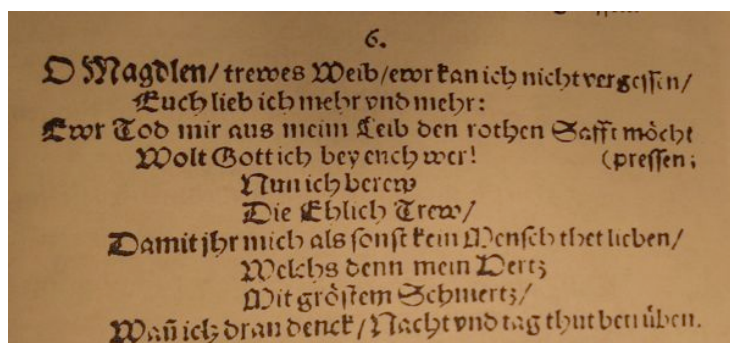 6.
O Magdlen/ trewes Weib/ewr kan ich nicht vergessen/
Euch lieb ich mehr vnd mehr:
Ewr Tod mir aus meim Leib den rothen Safft möcht
Wolt Gott ich bey euch wer! (pressen;
Nun ich berew
Die Ehlich Trew/
Damit jhr mich als sonst kein Mensch thet lieben/
Welchs denn mein Hertz
Mit gröstem Schmertz/
Wañ ich dran denck/ Nacht vnd tag thut betrüben.